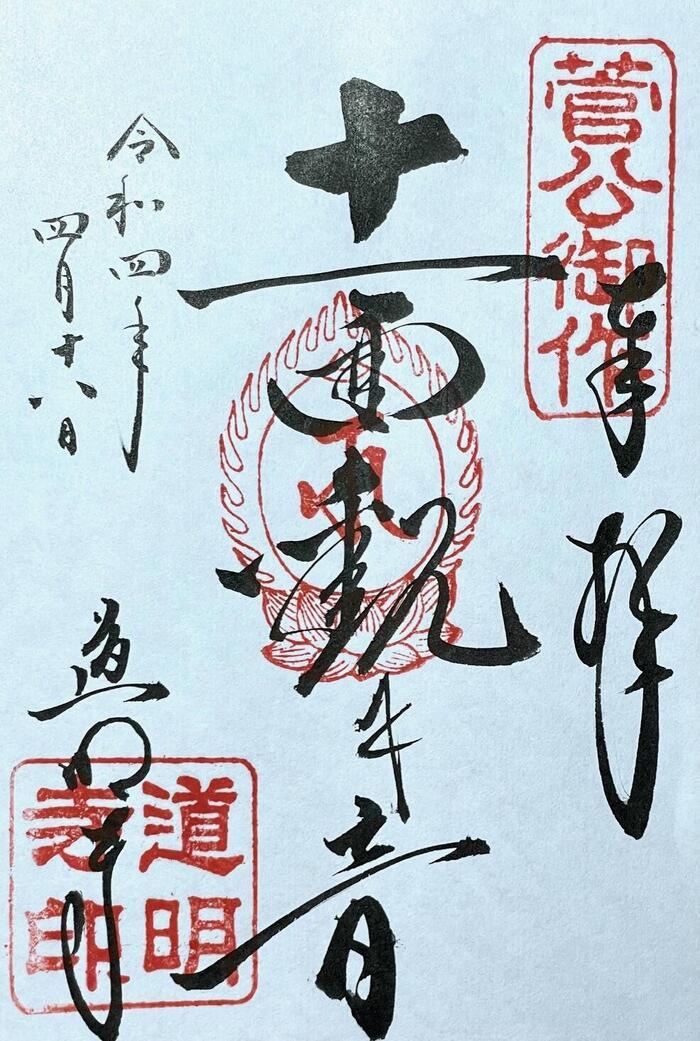 菅公御作
奉拝
十一面観世音
令和四年
四月十八日
道明寺
道明寺印